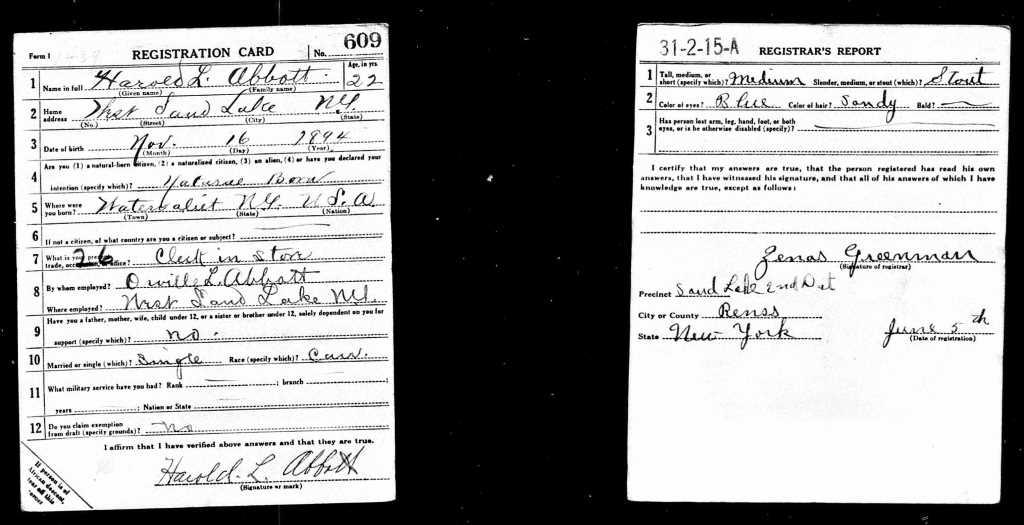 Form 1 REGISTRATION CARD No. 609
1 Name in full Harold L. Abbott. Age, in yrs. 22
(Given name) (Family name)
2 Home address West Sand Lake N.Y.
(No.) (Street) (City) (State)
3 Date of birth Nov. 16 1894
(Month) (Day) (Year)
4 Are you (1) a natural-born citizen, (2) a naturalized citizen, (3) an alien, (4) or have you declared your
intention (specify which)? Natural Born
5 Where were you born? Watervaliet N.Y. U.S.A
(Town) (State) (Nation)
6 If not a citizen, of what country are you a citizen or subject?
7 What is your present trade, occupation, or office? 26 Clerk in Store
8 By whom employed? Orville L. Abbott
Where employed? West Sand Lake N.Y.
9 Have you a father, mother, wife, child under 12, or a sister or brother under 12, solely dependent on you for
support (specify which)? no.
10 Married or single (which)? Single Race (specify which)? Cau.
11 What military service have you had? Rank ; branch ;
years ; Nation or State
12 Do you claim exemption from draft (specify grounds)? No
I affirm that I have verified above answers and that they are true.
Harold L. Abbott
(Signature or mark)
If person is of
African descent,
tear off this
corner
31-2-15-A REGISTRAR'S REPORT
1 Tall, medium, or short (specify which)? Medium Slender, medium, or stout (which)? Stout
2 Color of eyes? Blue Color of hair? Sandy Bald?
3 Has person lost arm, leg, hand, foot, or both
eyes, or is he otherwise disabled (specify)?
I certify that my answers are true, that the person registered has read his own
answers, that I have witnessed his signature, and that all of his answers of which I have
knowledge are true, except as follows:
Zenas Greenman
(Signature of registrar)
Precinct Sand Lake 2nd Dist
City or County Renss
State New York June 5th
(Date of registration)